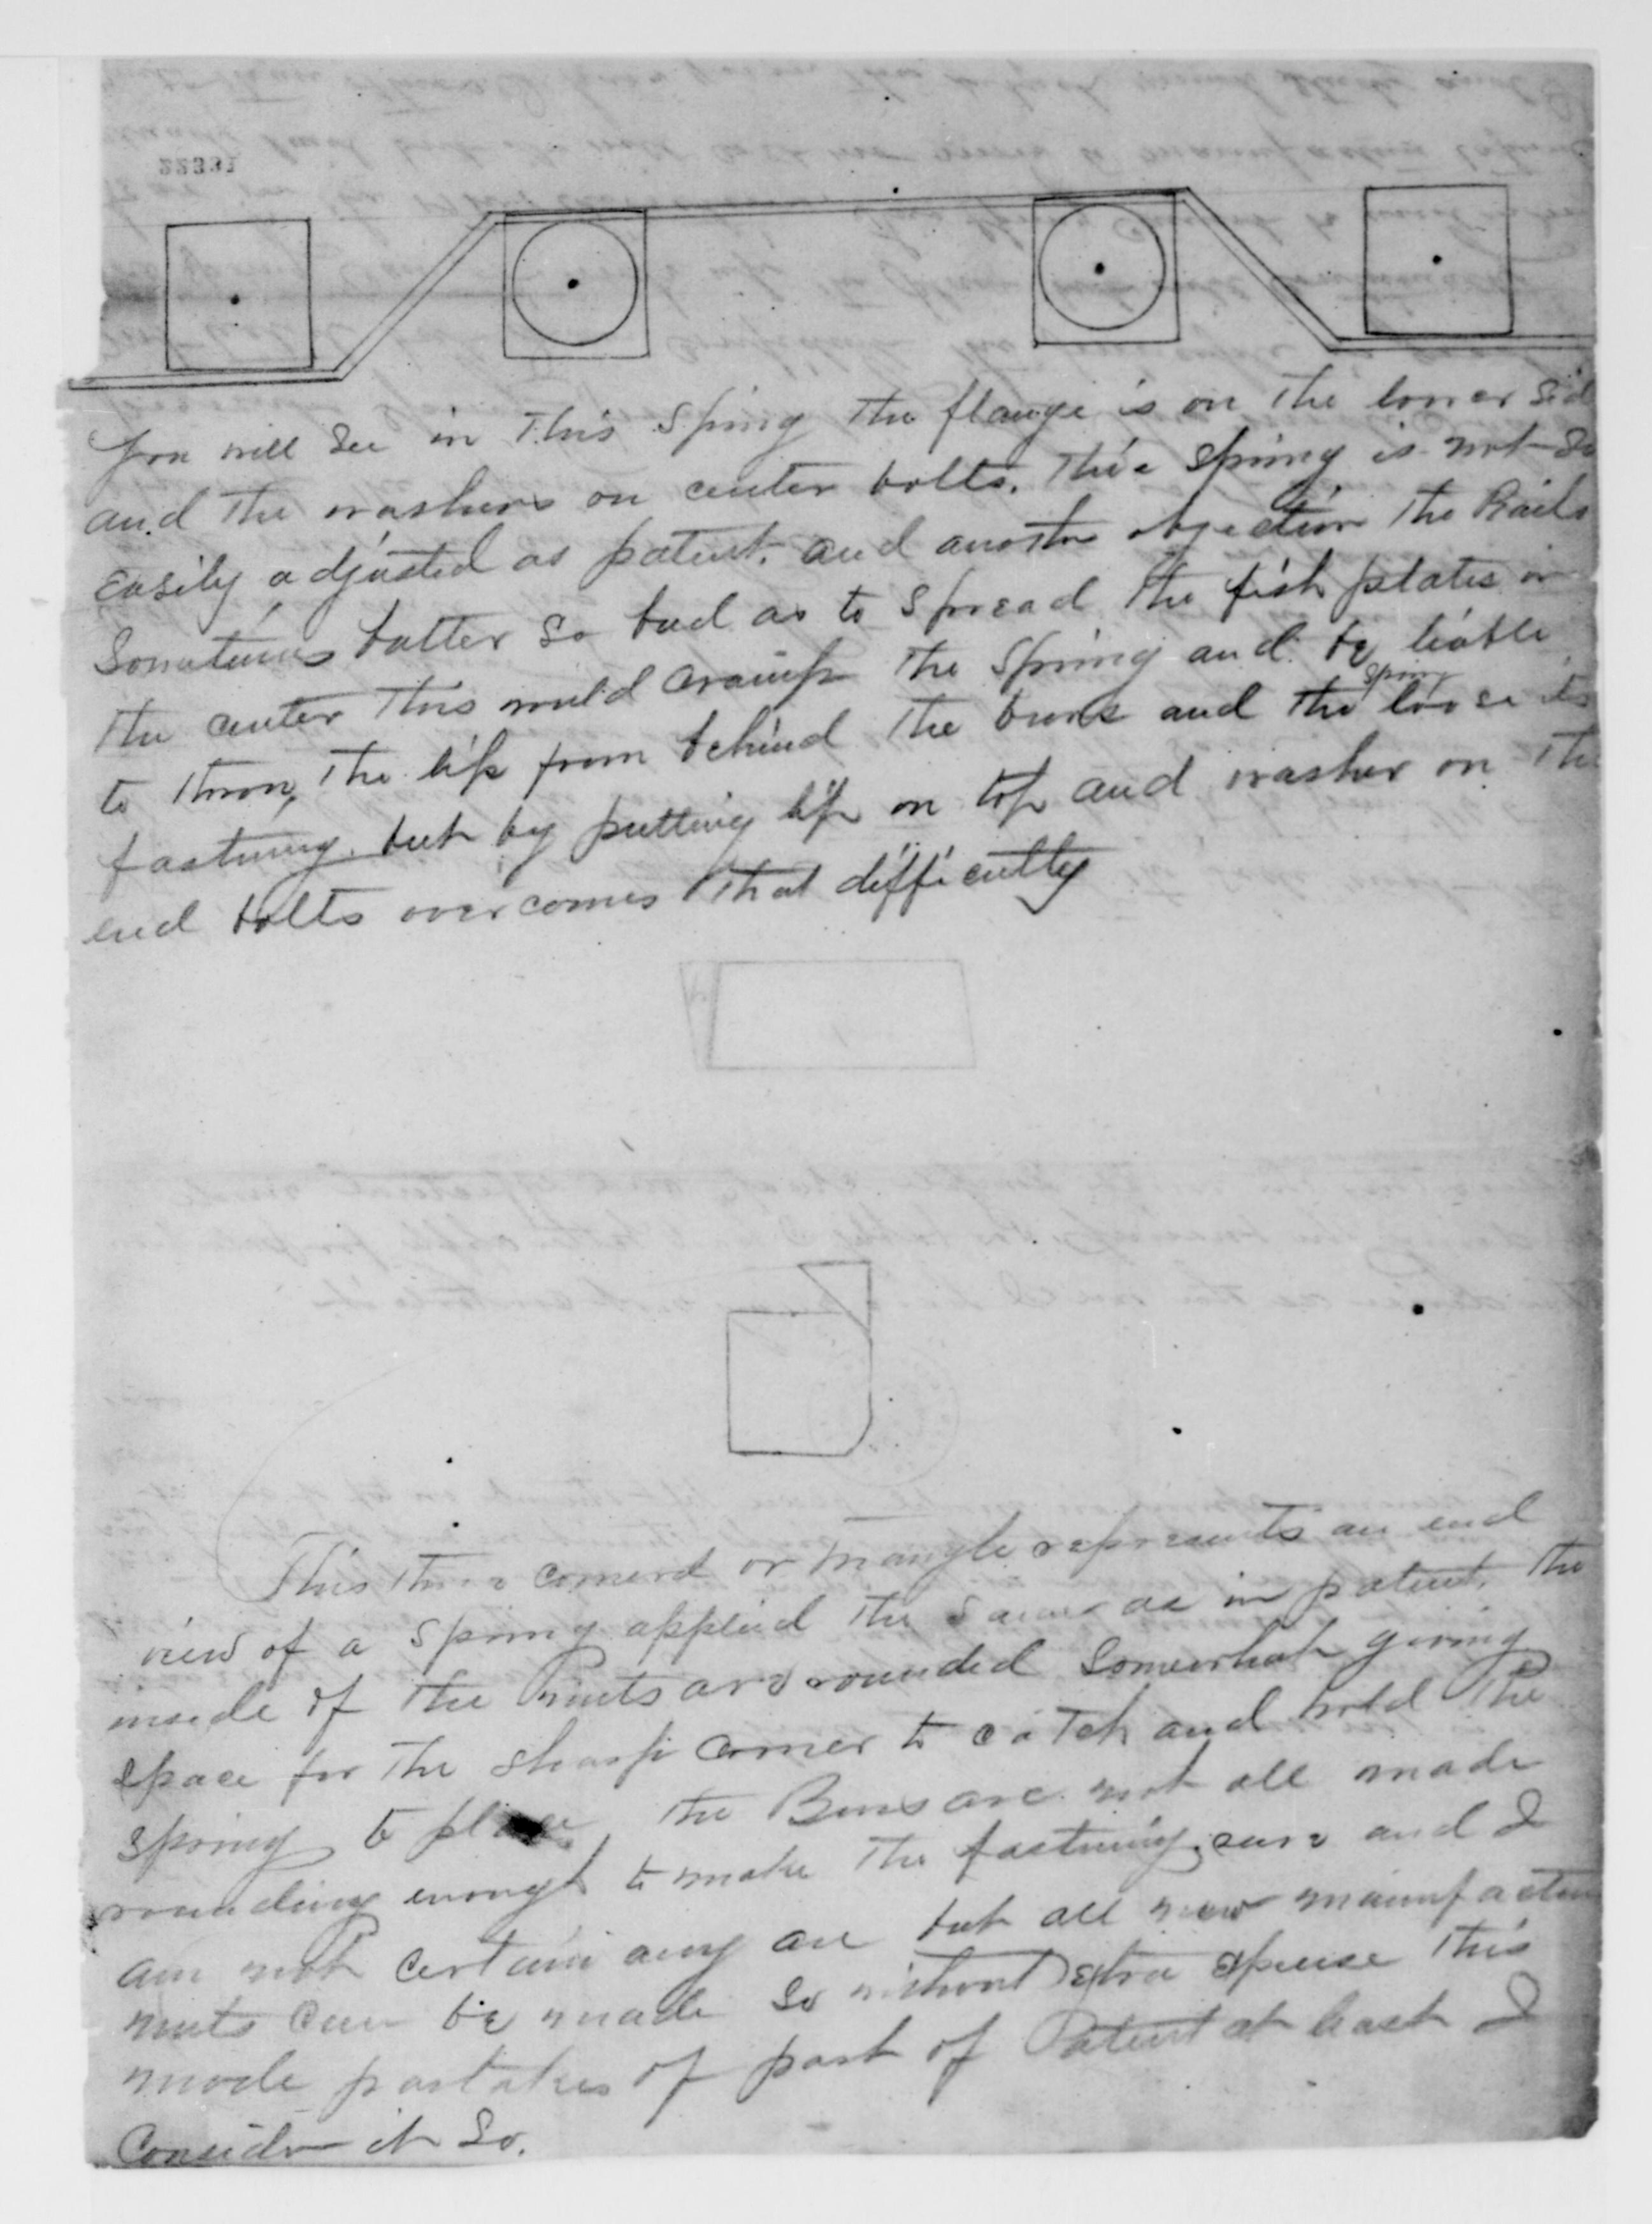 22331
You will see in this spring the flange is on the lower sid
and the washers on center bolts. this spring is not so
Easily adjusted as patent. and another objection the Rails
Sometimes batter so bad as to spread the fish plates in
the center this would cramp the spring and be liable
to throw, the lip from behind the burs and the spring loose its
fastning. but by putting lip on top and washer on the
end bolts overcomes that difficultly
This three cornerd or triangle represents an end
view of a spring applied the same as in patent. the
inside of the nuts are rounded somewhat giving
space for the sharp corner to catch and hold the
spring to place the Burs are not all made
rounding enough to make the fastning sure and I
am not certain any are but all new manufacture
nuts can be made so without extra expense this
mode partakes of part of Patent at least I
Consider it So.